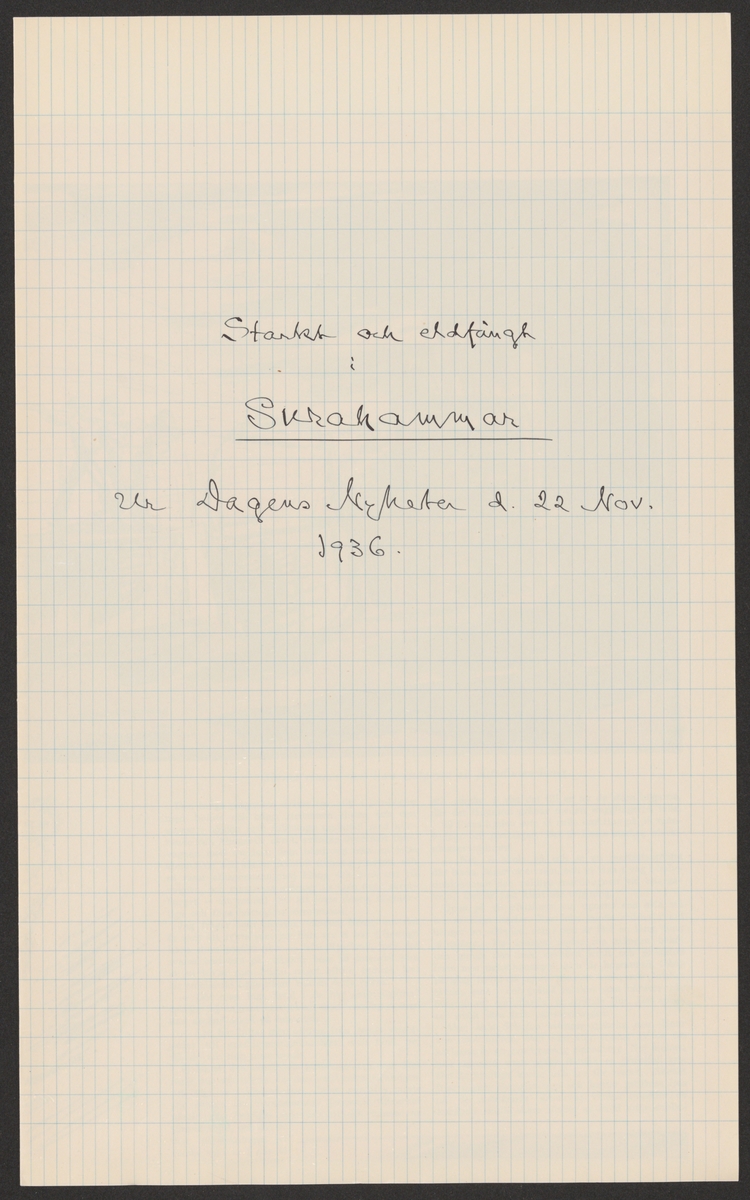 Starkt och eldfängt
i
Surahammar
Ur Dagens Nyheter d. 22 Nov.
1936.